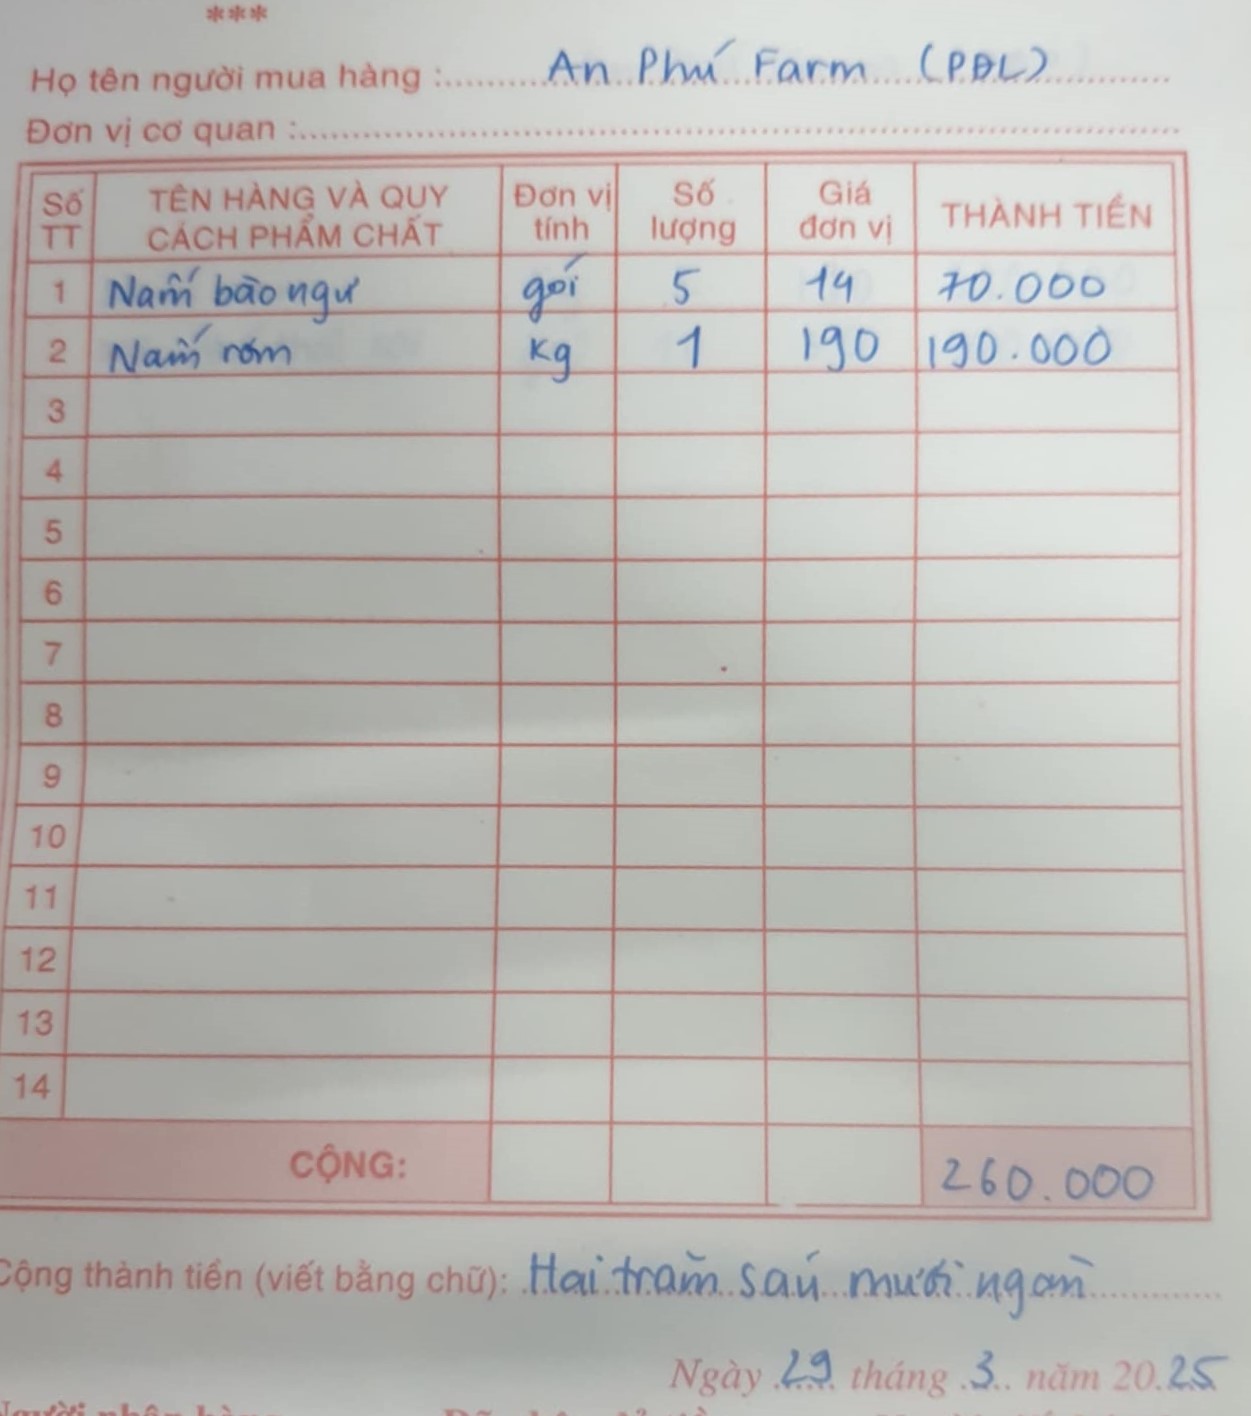 ***
Họ tên người mua hàng : An Phú Farm (PĐL)
Đơn vị cơ quan :
Số TT TÊN HÀNG VÀ QUY CÁCH PHẨM CHẤT Đơn vị tính Số lượng Giá đơn vị THÀNH TIỀN
1 Nấm bào ngư gói 5 14 70.000
2 Nấm rơm Kg 1 190 190.000
3
4
5
6
7
8
9
10
11
12
13
14
CỘNG: 260.000
Cộng thành tiền (viết bằng chữ): Hai trăm sáu mươi ngàn
Ngày 29 tháng 3 năm 2025